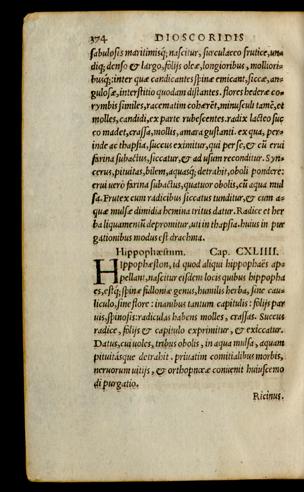 374 DIOSCORIDIS
sabulosis maritimisq; nascitur, surculaceo frutice, un-
diq; denso & largo, folijs oleæ, longioribus, mollióri-
busq;: inter quæ candicantes spinæ emicant, siccæ, an-
gulosæ, interstitio quodam distantes. flores hederæ co-
rymbis similes, racematim cohærẽt, minusculi tamẽ, et
molles, candidi, ex parte rubescentes. radix lacteo suc
co madet, crassa, mollis, amara gustanti. ex qua, per-
inde ac thapsia, succus eximitur, qui per se, & cũ erui
farina subactus, siccatur, & ad usum reconditur. Syn-
cerus, pituitas, bilem, aquasq; detrahit, oboli pondere:
erui uerò farina subactus, quatuor obolis, cũ aqua mul
sa. Frutex cum radicibus siccatus tunditur, & cum a-
quæ mulsæ dimidia hemina tritus datur. Radice et her
ba liquamenũ depromitur, uti in thapsia. huius in pur
gationibus modus est drachma.
Hippophæstum. Cap. CXLIIII.
Hippophæston, id quod aliqui hippophaës ap-
pellant, nascitur eisdem locis quibus hippopha
es, estq; spinæ fulloniæ genus, humilis herba, sine cau-
liculo, sine flore: inanibus tantum capitulis: folijs par
uis, spinosis: radiculas habens molles, crassas. Succus
radice, folijs & capitulo exprimitur, & exiccatur.
Datus, cui uoles, tribus obolis, in aqua mulsa, aquam
pituitásque detrahit. priuatim comitialibus morbis,
neruorum uitijs, & orthopnœæ conuenit huiuscemo
di purgatio.
Ricinus.